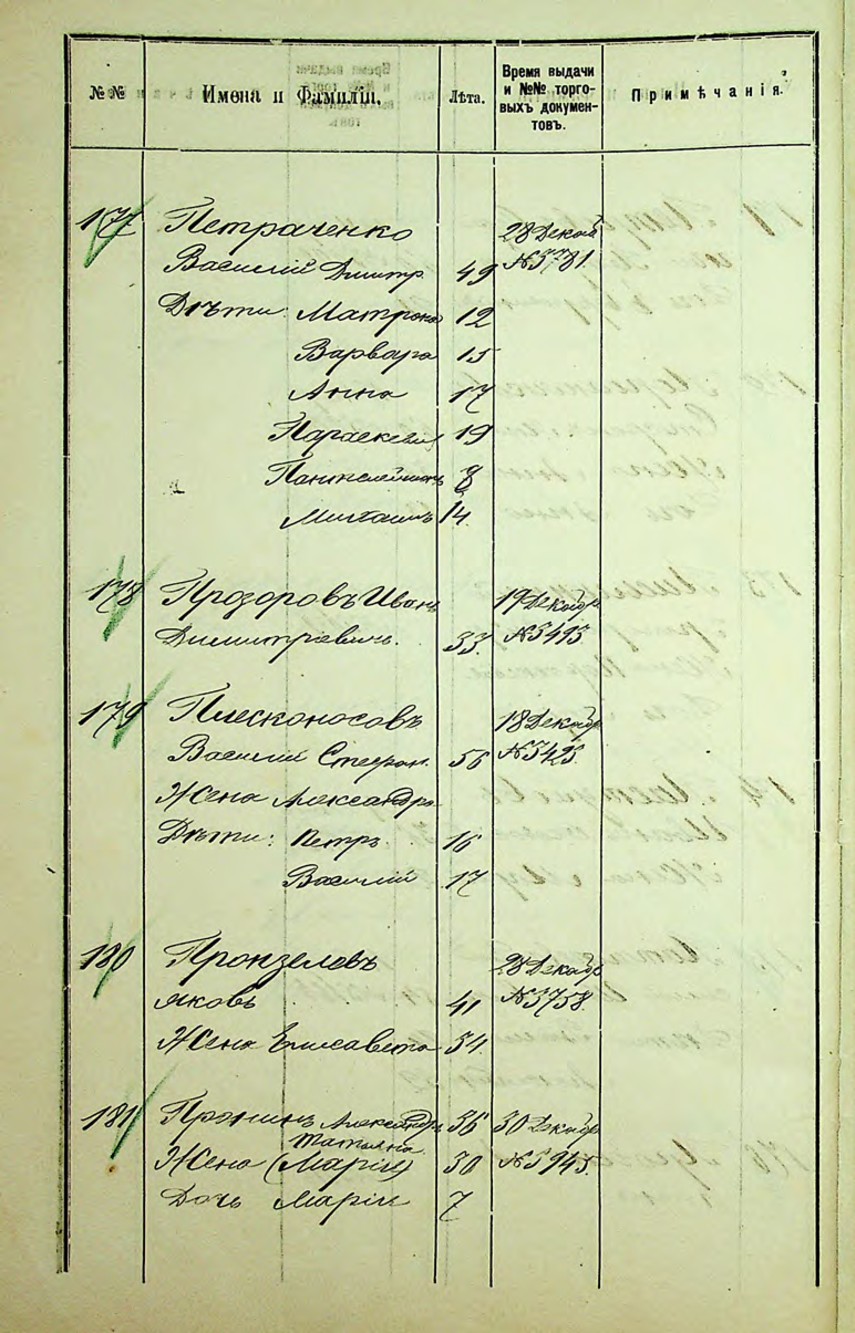 № №
Имена и Фамиліи.
Лѣта.
Время выдачи и №№ торговыхъ документовъ.
Примѣчанія.
177 Петраченко 28 Декаб
Василий Димитр. 49 № 3781.
Дѣти: Матрона 12
Варвара 15
Анна 17
Параскева 19
Пантелеймонъ 8
Михаилъ 14
178 Прозоровъ Иванъ 19 Декабр
Димитріевичъ. 33. № 3493.
179 Плесконосовъ 18 Декабр
Василій Стефан. 56 № 3423.
Жена Александра
Дѣти: Петръ 16
Василій 17
180 Пронзелевъ 28 Декабр
Яковъ 41 № 3758.
Жена Елисавета 34.
181 Пронинъ Александръ 36 30 Декабр
Татьяна
Жена (Марія) 30 № 3945.
Дочь Марія 7